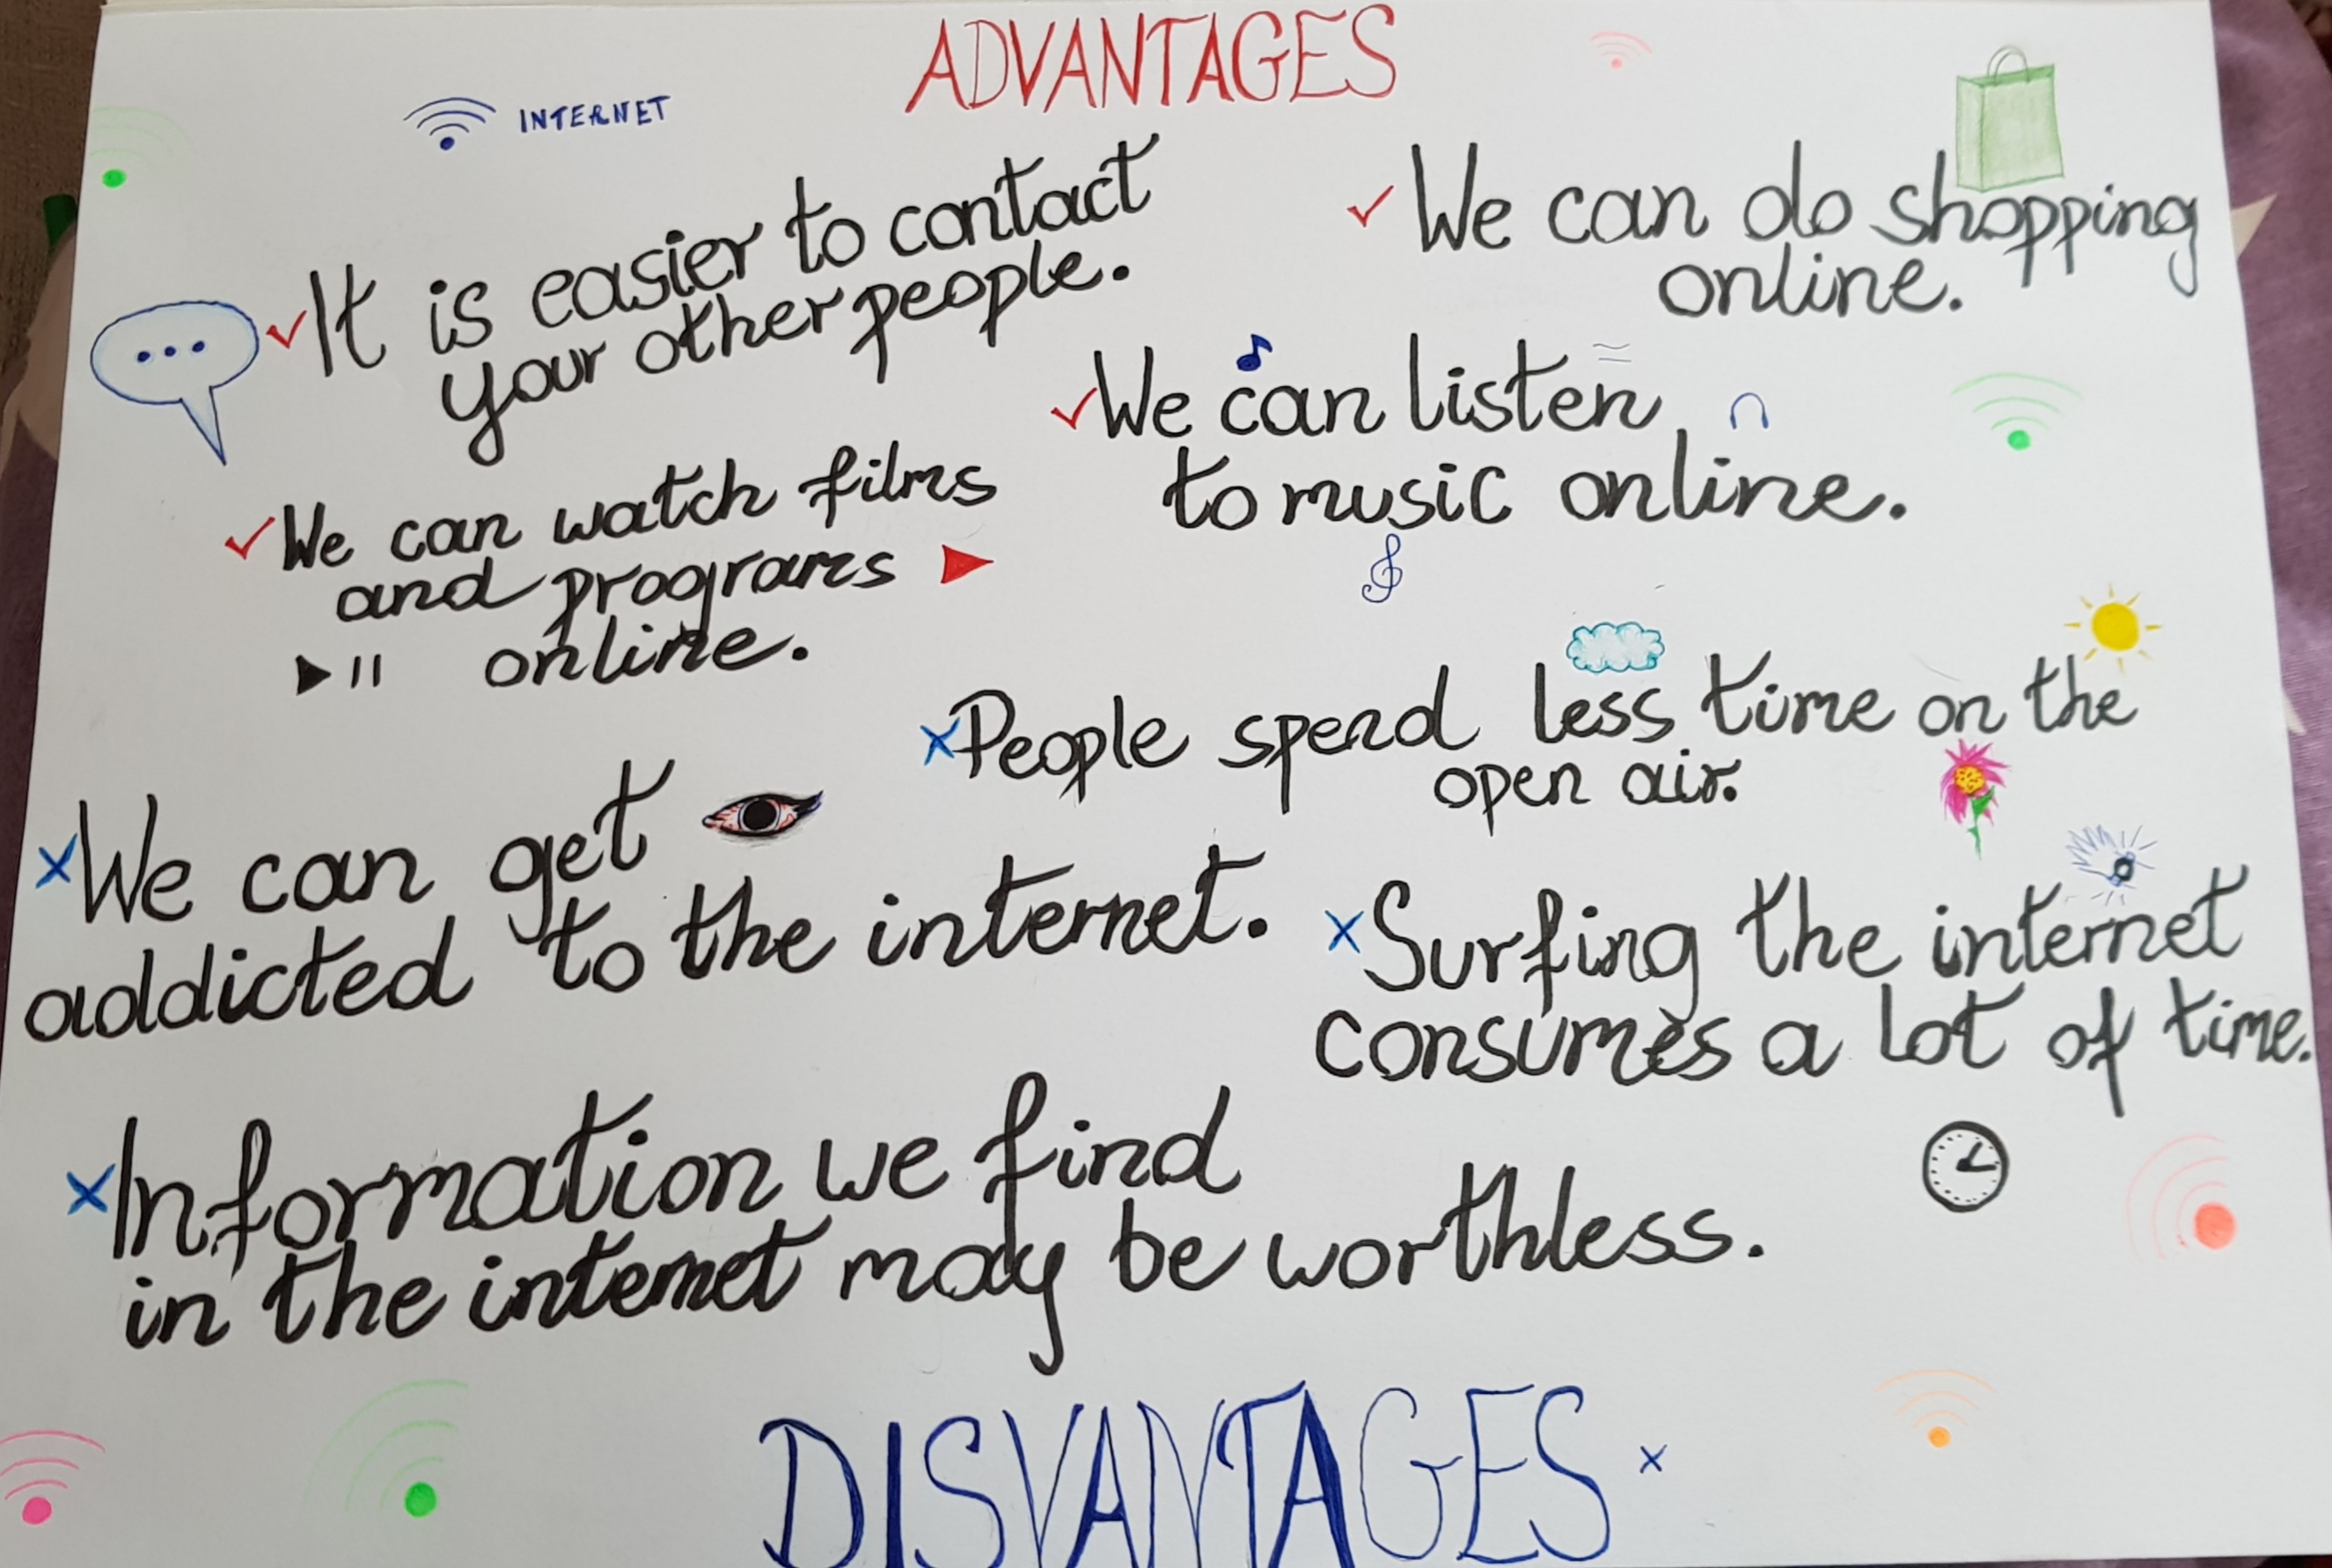 ADVANTAGES
INTERNET
It is easier to contact
your other people.
We can do shopping
online.
We can listen
to music online.
We can watch films
and programs
online.
People spend less time on the
open air.
We can get
addicted to the internet.
Surfing the internet
consumes a lot of time.
Information we find
in the internet may be worthless.
DISVANTAGES